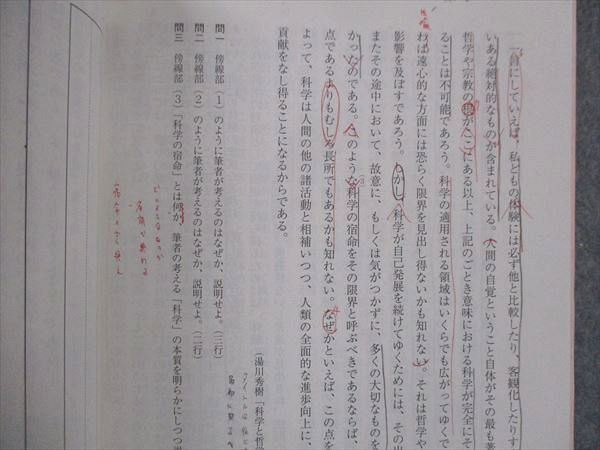 一言にしていえば、私どもの体験には必ず他と比較したり、客観化したりす
いある絶対的なものが含まれている。人間の自覚ということ自体がその最も著
哲学や宗教の根がここにある以上、上記のごとき意味における科学が完全にそ
ることは不可能であろう。科学の適用される領域はいくらでも広がってゆくで
わば遠心的な方面には恐らく限界を見出し得ないかも知れない。それは哲学や
影響を及ぼすであろう。しかし、科学が自己発展を続けてゆくためには、その出
またその途中において、故意に、もしくは気がつかずに、多くの大切なものを
かったのである。このような科学の宿命をその限界と呼ぶべきであるならば、
点であるよりもむしろ長所でもあるかも知れない。なぜかといえば、この点を
よって、科学は人間の他の諸活動と相補いつつ、人類の全面的な進歩向上に、
貢献をなし得ることになるからである。
（湯川秀樹「科学と哲学
問一 傍線部（1）のように筆者が考えるのはなぜか、説明せよ。（三行）
問二 傍線部（2）のように筆者が考えるのはなぜか、説明せよ。（二行）
問三 傍線部（3）「科学の宿命」とは何か、筆者の考える「科学」の本質を明らかにしつつ説